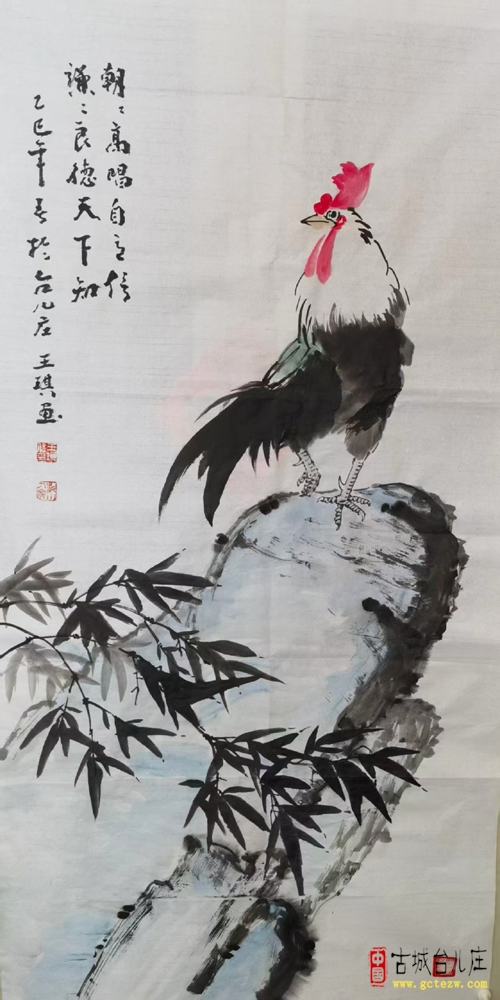 朝々高唱自立信
谦々良德天下知
乙巳年春於台儿庄 王琪画
中国
古城台儿庄
www.gctezw.com